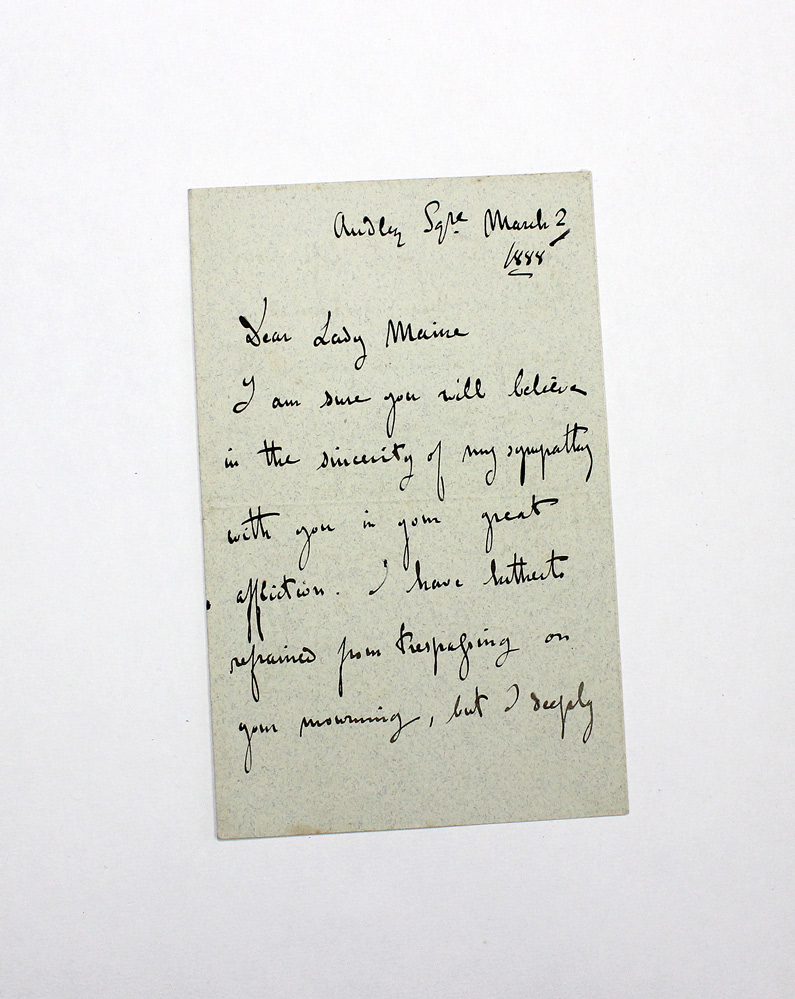 Audley Sqre March 2
1888
Dear Lady Maine
I am sure you will believe
in the sincerity of my sympathy
with you in your great
affliction. I have hitherto
refrained from trespassing on
your mourning, but I deeply